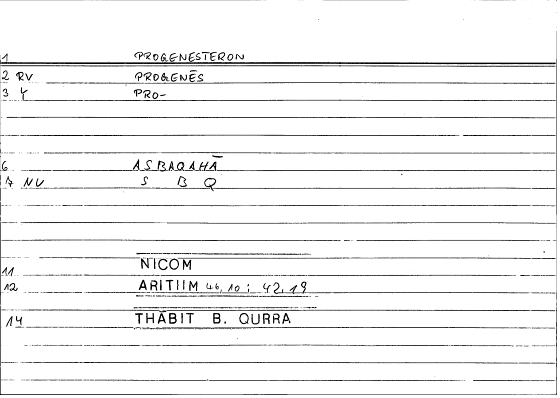 1 PROGENESTERON
2 RV PROGENĒS
3 Y PRO-
6 ASBAQAHĀ
7 NV S B Q
11 NICOM
12 ARITIIM 46,10 : 42,19
14 THĀBIT B. QURRA